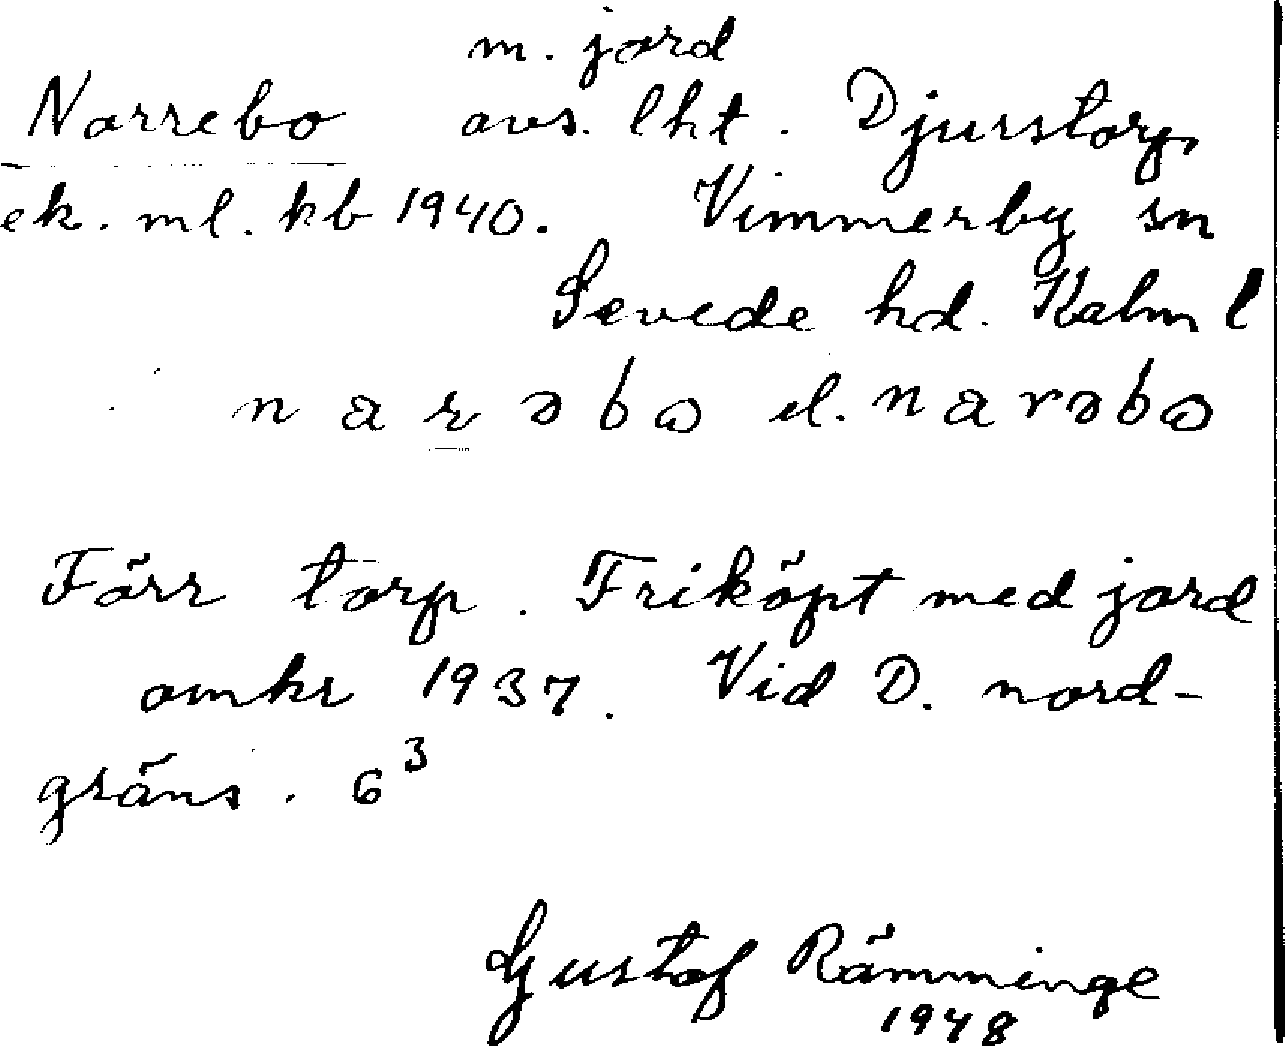 m. jord
Narrebo avs. lht. Djurstorp
ek. ml. kb 1940. Vimmerby sn
Sevede hd. Kalm l
n a r ə b ɷ el. n a r ə b ɷ
Förr torp. Friköpt med jord
omkr 1937. Vid D. nord-
gräns. 6³
Gustaf Rämminge
1948